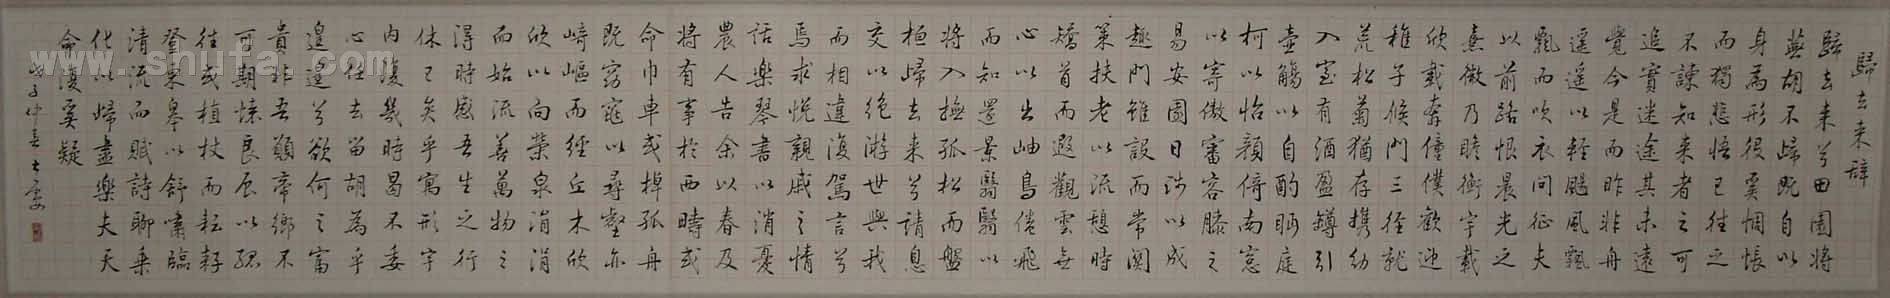 歸去来辞
歸去来兮田園將
蕪胡不歸既自以
身為形役奚惆悵
而獨悲悟已往之
不諫知来者之可
追實迷途其未遠
覺今是而昨非舟
遥遥以輕颺風飄
飄而吹衣問征夫
以前路恨晨光之
熹微乃瞻衡宇載
欣載奔僮僕歡迎
稚子候門三徑就
荒松菊猶存携幼
入室有酒盈罇引
壺觴以自酌眄庭
柯以怡顔倚南窓
以寄傲審容膝之
易安園日涉以成
趣門雖設而常関
策扶老以流憩時
矯首而遐觀雲無
心以出岫鳥倦飛
而知還景翳翳以
將入撫孤松而盤
桓歸去来兮請息
交以绝游世與我
而相違復駕言兮
焉求悦親戚之情
話樂琴書以消憂
農人告余以春及
將有事於西疇或
命巾車或棹孤舟
既窈窕以尋壑亦
崎嶇而經丘木欣
欣以向榮泉涓涓
而始流善萬物之
得時感吾生之行
休已矣乎寓形宇
内復幾時曷不委
心任去留胡為乎
遑遑兮欲何之富
貴非吾願帝鄉不
可期懐良辰以孤
往或植杖而耘耔
登東皋以舒嘯臨
清流而賦詩聊乘
化以歸盡樂夫天
命復奚疑
戊子仲夏
www.shufa.com